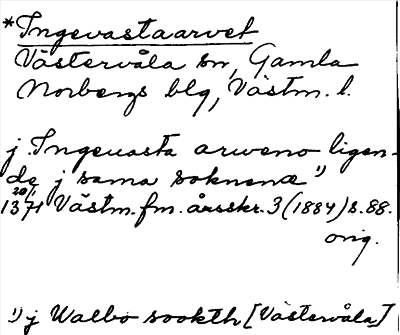 *Ingevastaarvet
Västervåla sn, Gamla
Norbergs blg, Västm. l.
j Ingeuasta arweno ligen-
de j sama soknenæ 1)
20/1
1371 Västm. fm. årsskr. 3 (1884) s. 88.
orig.
1) j Walbo sookth [Västervåla]